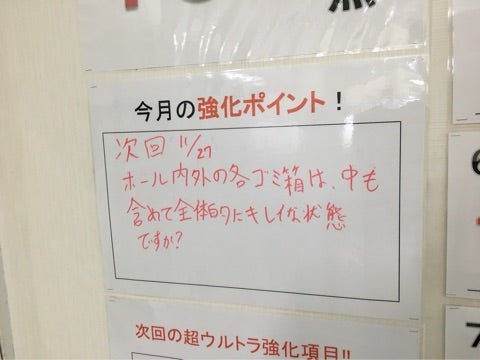 今月の強化ポイント!
次回 11/27
ホール内外の各ゴミ箱は、中も
含めて全体的にキレイな状態
ですか?
次回の超ウルトラ強化項目!!